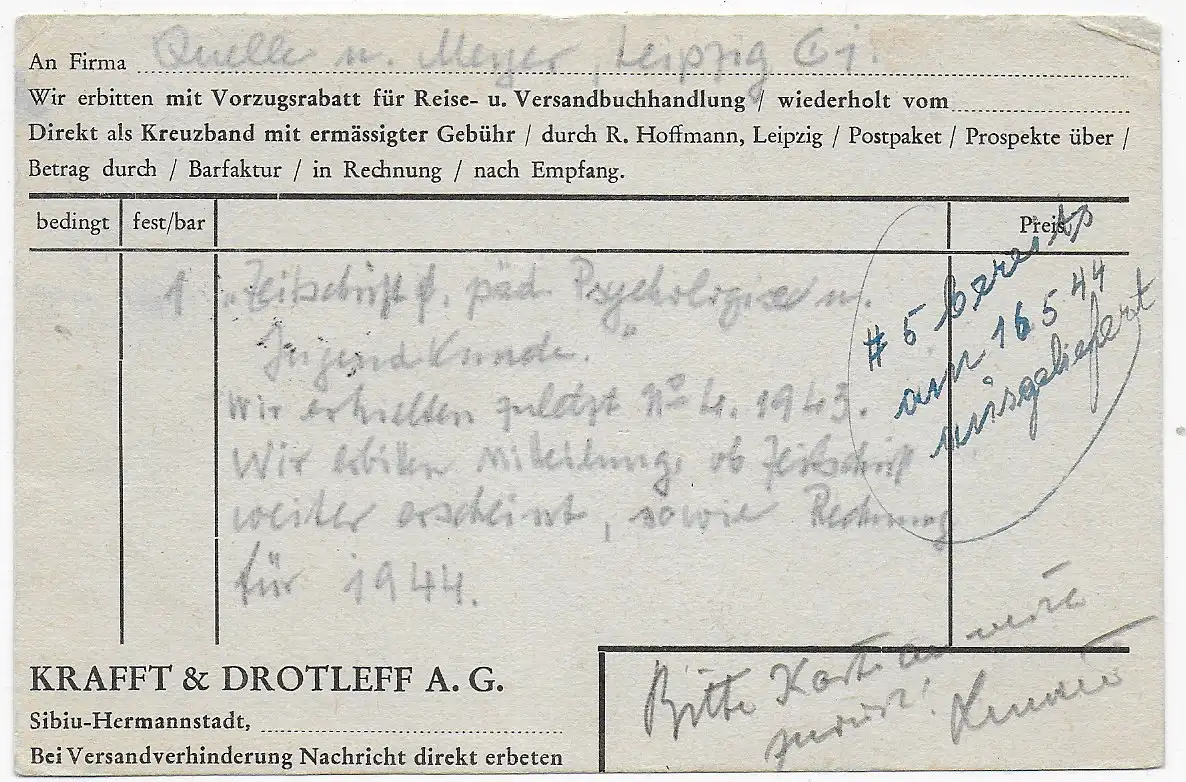 An Firma Quelle u. Meyer, Leipzig C 1.
Wir erbitten mit Vorzugsrabatt für Reise- u. Versandbuchhandlung / wiederholt vom
Direkt als Kreuzband mit ermässigter Gebühr / durch R. Hoffmann, Leipzig / Postpaket / Prospekte über /
Betrag durch / Barfaktur / in Rechnung / nach Empfang.
bedingt fest/bar Preis
1 „Zeitschrift f. päd. Psychologie u.
Jugendkunde.“
Wir erhielten zuletzt No 4. 1943.
Wir erbitten Mitteilung, ob Zeitschrift
weiter erscheint, sowie Rechnung
für 1944.
# 5 bereits
am 16 5 44
ausgeliefert
Bitte Karte an
zurück!
KRAFFT & DROTLEFF A. G.
Sibiu-Hermannstadt,
Bei Versandverhinderung Nachricht direkt erbeten